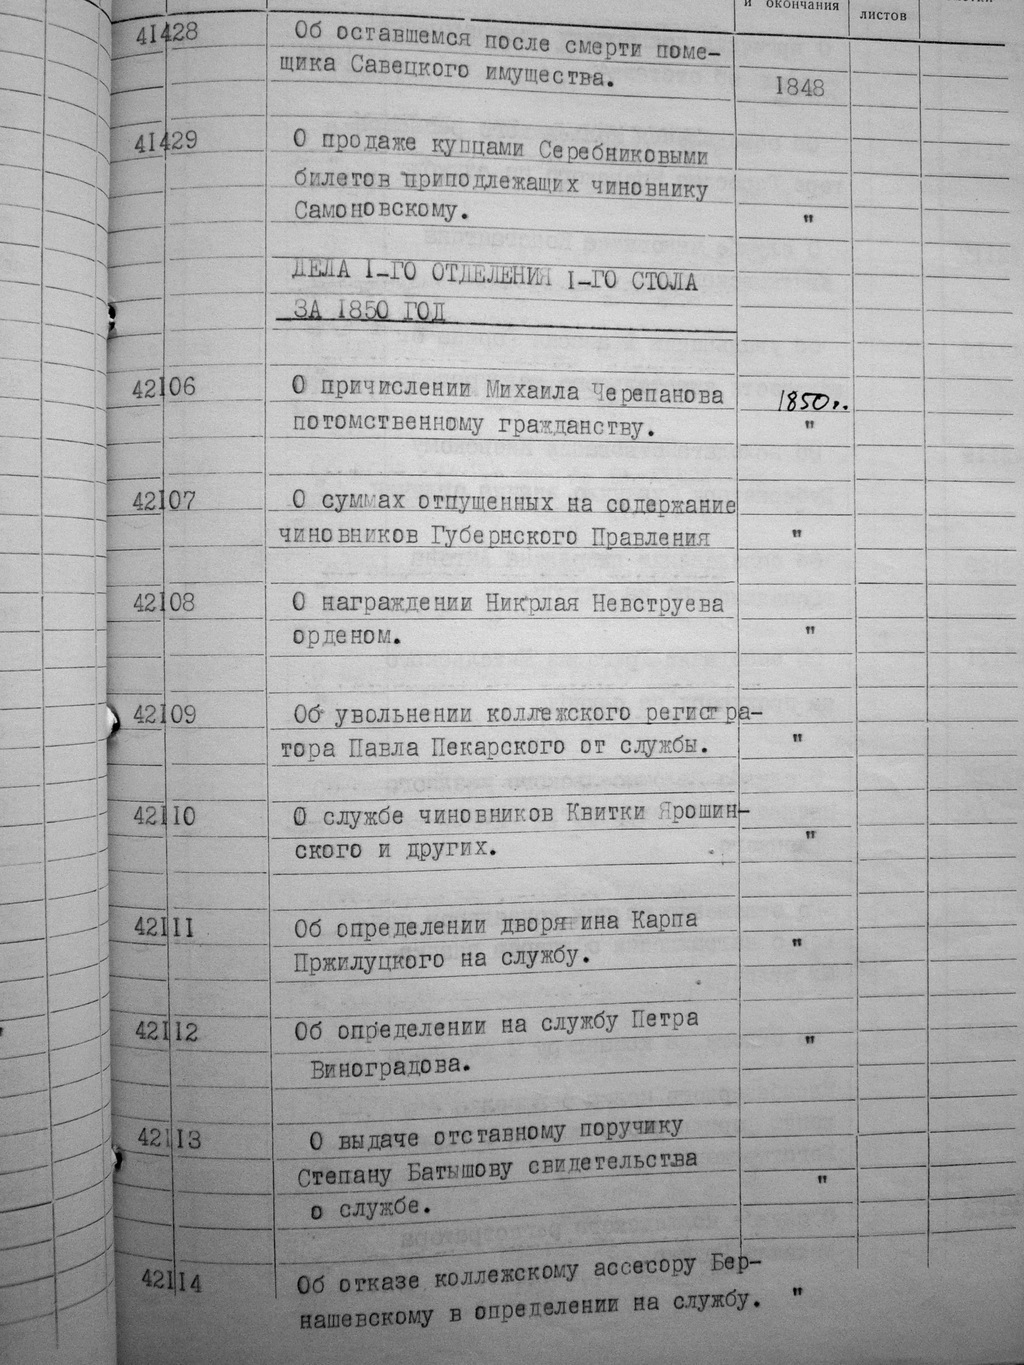 и окончания
листов
41428 Об оставшемся после смерти поме-
щика Савецкого имущества.
1848
41429 О продаже купцами Серебниковыми
билетов приподлежащих чиновнику
Самоновскому. "
ДЕЛА I-ГО ОТДЕЛЕНИЯ I-ГО СТОЛА
ЗА 1850 ГОД
42106 О причислении Михаила Черепанова 1850г.
потомственному гражданству. "
42107 О суммах отпущенных на содержание
чиновников Губернского Правления "
42108 О награждении Николая Невструева
орденом. "
42109 Об увольнении коллежского регистра-
тора Павла Пекарского от службы. "
42110 О службе чиновников Квитки Ярошин-
ского и других. "
42111 Об определении дворянина Карпа
Пржилуцкого на службу. "
42112 Об определении на службу Петра
Виноградова. "
42113 О выдаче отставному поручику
Степану Батышову свидетельства
о службе. "
42114 Об отказе коллежскому ассесору Бер-
нашевскому в определении на службу. "